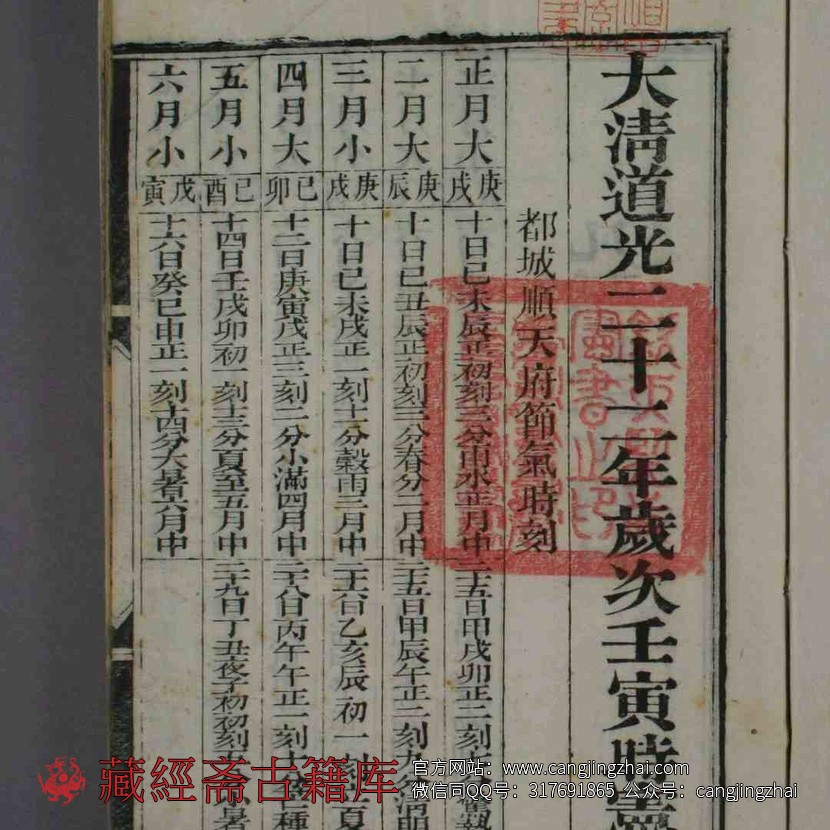 大清道光二十二年歲次壬寅時憲
都城順天府節氣時刻
正月大 庚戌 十日己未辰正初刻三分雨水正月中 二十五日甲戌卯正二刻
二月大 庚辰 十日己丑辰正初刻三分春分二月中 二十五日甲辰午正三刻
三月小 庚戌 十日己未戌正一刻十一分穀雨三月中 二十六日乙亥辰初一刻
四月大 己卯 十二日庚寅戌正三刻二分小滿四月中 二十八日丙午午正一刻
五月小 己酉 十四日壬戌卯初一刻十三分夏至五月中 二十九日丁丑夜子初初刻
六月小 戊寅 十六日癸巳申正一刻十四分大暑六月中
藏經斋古籍库
官方网站：www.cangjingzhai.com
微信同QQ号：317691865 公众号：cangjingzhai